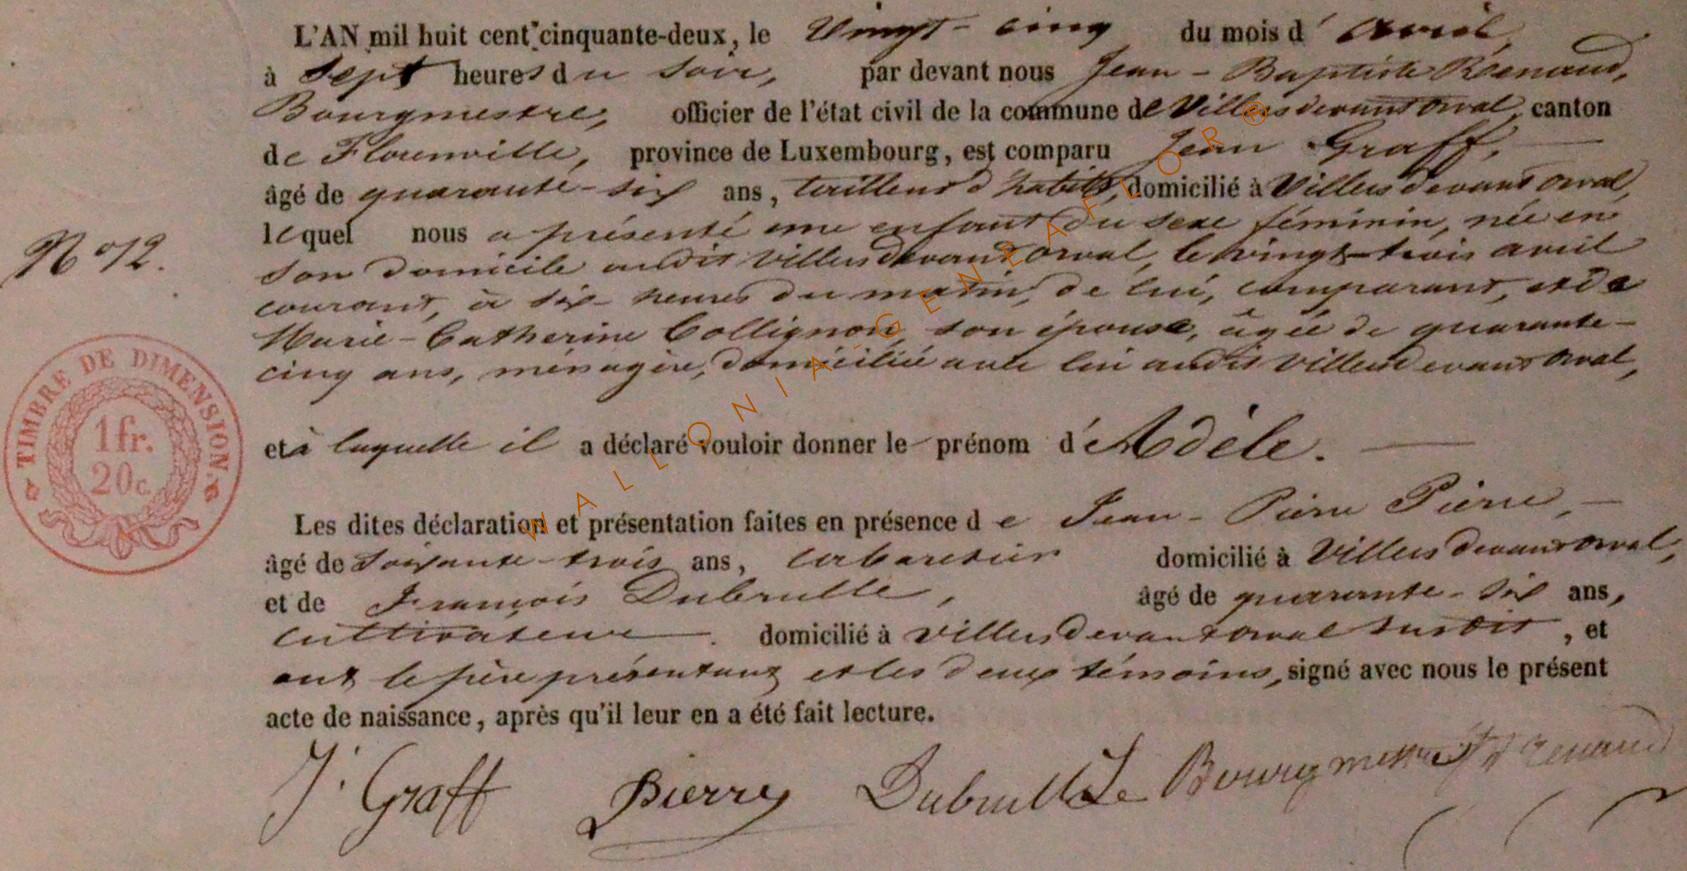 L'AN mil huit cent cinquante-deux, le vingt-cinq du mois d'avril,
à sept heures du soir, par devant nous Jean-Baptiste Rénaud,
Bourgmestre, officier de l'état civil de la commune de Villersdevantorval, canton
de Florenville, province de Luxembourg, est comparu Jean Graff,
âgé de quarante-six ans, tailleur d'habits, domicilié à Villersdevantorval,
lequel nous a présenté une enfant du sexe féminin, née en
N° 12.
son domicile audit Villersdevantorval, le vingt-trois avril
courant, à six heures du matin, de lui, comparant, et de
Marie-Catherine Collignon, son épouse, âgée de quarante-
cinq ans, ménagère, domiciliée avec lui audit Villersdevantorval,
TIMBRE DE DIMENSION.
1fr.
20c.
et à laquelle il a déclaré vouloir donner le prénom d'Adèle.
Les dites déclaration et présentation faites en présence de Jean-Pierre Pierre,
âgé de soixante-trois ans, cabaretier domicilié à Villersdevantorval,
et de François Dubrulle, âgé de quarante-six ans,
cultivateur domicilié à Villersdevantorval susdit, et
ont le père présentant et les deux témoins, signé avec nous le présent
acte de naissance, après qu'il leur en a été fait lecture.
J. Graff Pierre Dubrulle Le Bourgmestre Renaud
WALLONIA-GENEAFLOR®